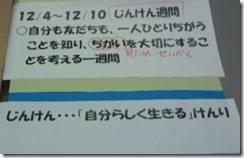 12/4～12/10 じんけん週間
○自分も友だちも、一人ひとりちがう
ことを知り、ちがいを大切にするこ
見ため、せいかく
とを考える一週間
じんけん・・・「自分らしく生きる」けんり